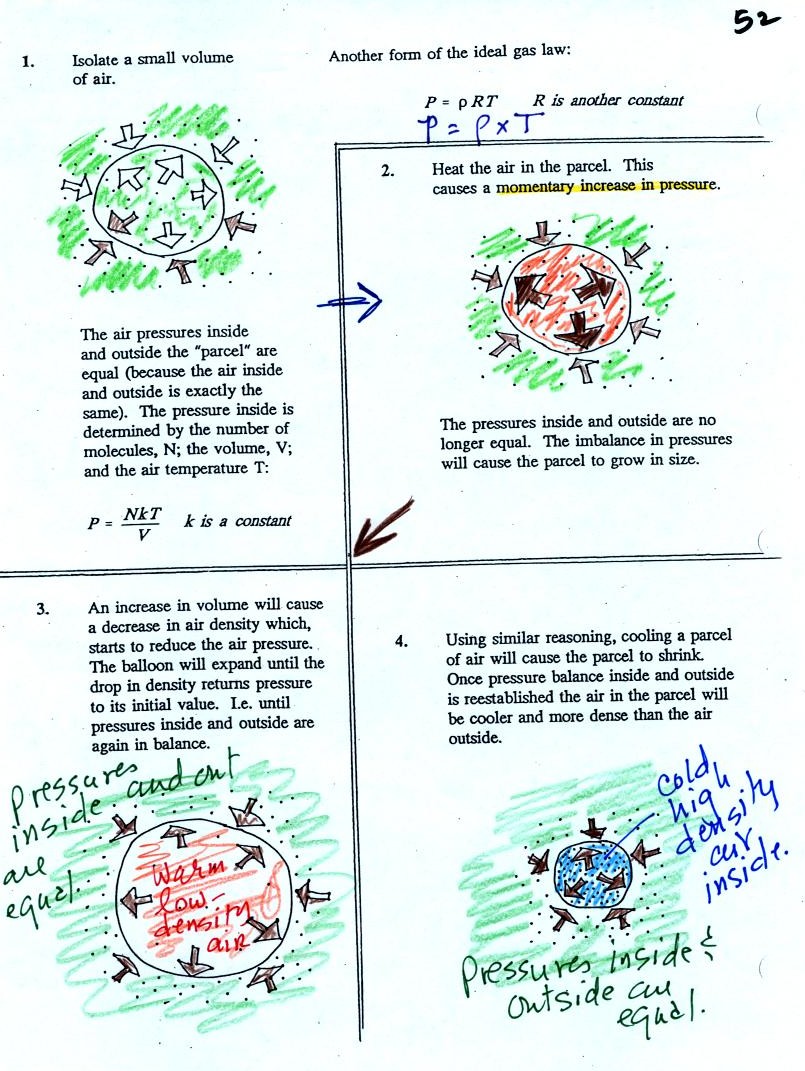 52
1. Isolate a small volume
of air.
Another form of the ideal gas law:
P = ρRT R is another constant
P = ρ x T
2. Heat the air in the parcel. This
causes a momentary increase in pressure.
The air pressures inside
and outside the "parcel" are
equal (because the air inside
and outside is exactly the
same). The pressure inside is
determined by the number of
molecules, N; the volume, V;
and the air temperature T:
P = NkT / V k is a constant
The pressures inside and outside are no
longer equal. The imbalance in pressures
will cause the parcel to grow in size.
3. An increase in volume will cause
a decrease in air density which,
starts to reduce the air pressure.
The balloon will expand until the
drop in density returns pressure
to its initial value. I.e. until
pressures inside and outside are
again in balance.
Pressures
inside and out
are
equal.
Warm
low-
density
air
4. Using similar reasoning, cooling a parcel
of air will cause the parcel to shrink.
Once pressure balance inside and outside
is reestablished the air in the parcel will
be cooler and more dense than the air
outside.
cold,
high
density
air
inside.
Pressures inside &
outside are
equal.